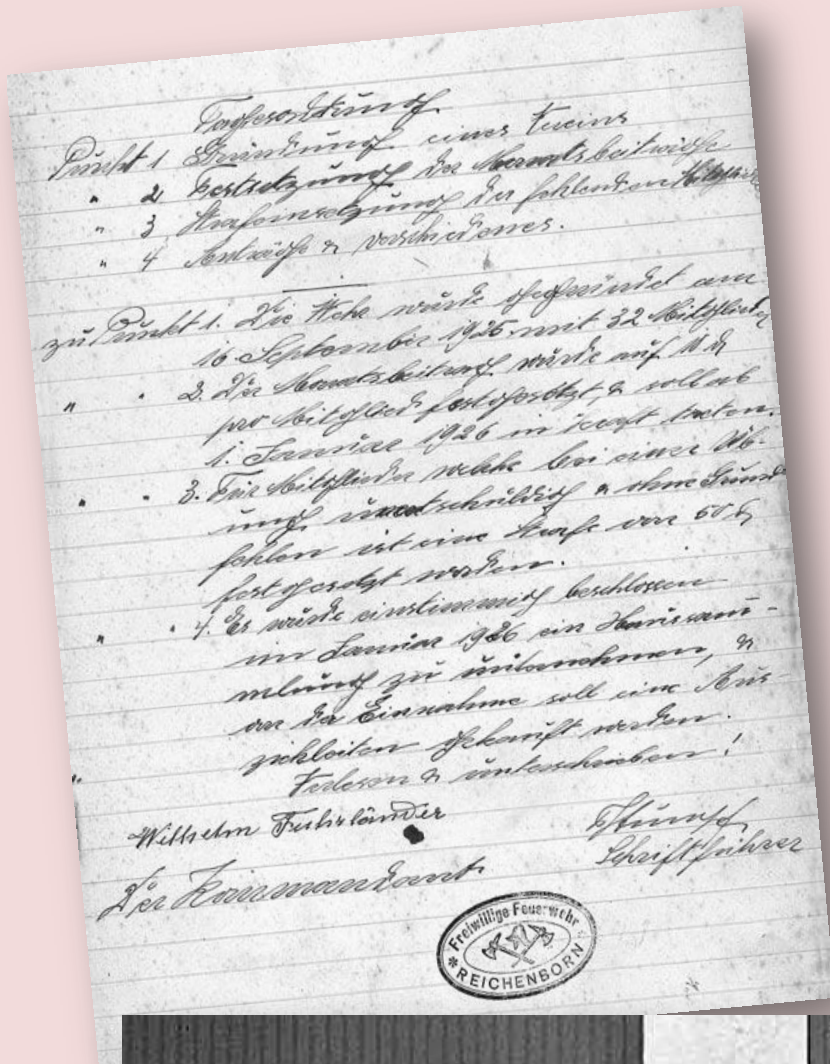 Tagesordnung
Punkt 1 Gründung eines Vereins
" 2 Festsetzung der Monatsbeiträge
" 3 Strafeinsetzung der fehlenden Mitglieder
" 4 Anträge & verschiedenes.
zu Punkt 1. Die Wehr wurde gegründet am
16 September 1925 mit 32 Mitglieder
" " 2. Der Monatsbeitrag wurde auf
pro Mitglied festgesetzt, & soll ab
1. Januar 1926 in kraft treten.
" " 3. Für Mitglieder welche bei einer Üb-
ung unentschuldig & ohne Grund
fehlen ist eine Strafe von 50
festgesetzt worden.
" " 4. Es wurde einstimmig beschlossen
im Januar 1926 ein Haussam-
mlung zu unternehmen, &
von der Einnahme soll eine Aus-
ziehleiter gekauft werden.
" Verlesen & unterschrieben!
Wilhelm Fuhrländer
Schriftführer
Der Kommandant
Freiwillige Feuerwehr
* REICHENBORN *